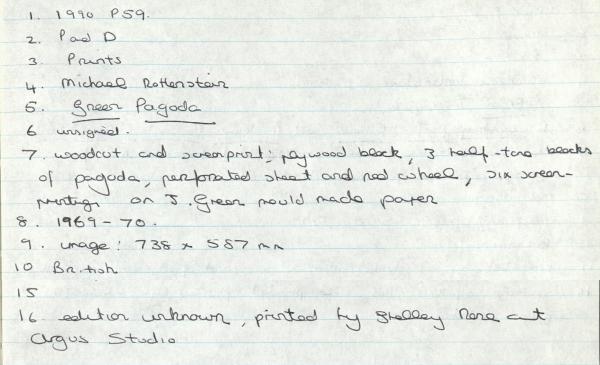 1. 1990 P59.
2. Pad D
3. Prints
4. Michael Rothenstein
5. Green Pagoda
6 unsigned.
7. woodcut and screenprint; plywood block, 3 half-tone blocks
of pagoda, perforated sheet and red wheel, six screen-
printings on J. Green mould made paper
8. 1969-70.
9. image: 738 x 587 mm
10 British
15
16. edition unknown, printed by Shelley Rose at
Argus Studio